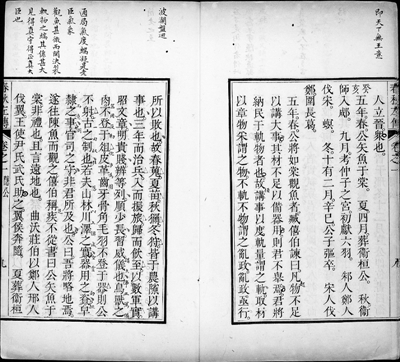 人立晉眾也
五年春公矢魚于棠 夏四月葬衛桓公 秋衛
師入郕 九月考仲子之宮初獻六羽 邾人鄭人
伐宋 螟 冬十有二月辛巳公子彄卒 宋人伐
鄭圍長葛
五年春公將如棠觀魚者臧僖伯諫曰凡物不足
以講大事其材不足以備器用則君不舉焉君將
納民于軌物者也故講事以度軌量謂之軌取材
以章物采謂之物不軌不物謂之亂政亂政亟行
春秋左傳 卷之一 隱公 九
所以敗也故春蒐夏苗秋獮冬狩皆于農隙以講
事也三年而治兵入而振旅歸而飲至以數軍實
昭文章明貴賤辨等列順少長習威儀也鳥獸之
肉不登于俎皮革齒牙骨角毛羽不登于器則公
不射古之制也若夫山林川澤之實器用之資皂
隸之事官司之守非君所及也公曰吾將略地焉
遂往陳魚而觀之僖伯稱疾不從書曰公矢魚于
棠非禮也且言遠地也 曲沃莊伯以鄭人邢人
伐翼王使尹氏武氏助之翼侯奔隨 夏葬衛桓